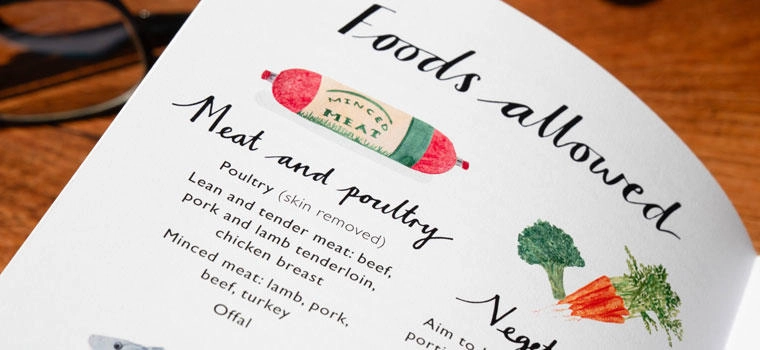 Foods allowed
MINCED
MEAT
Meat and poultry
Poultry (skin removed)
Lean and tender meat: beef,
pork and lamb tenderloin,
chicken breast
Minced meat: lamb, pork,
beef, turkey
Offal
Aim to